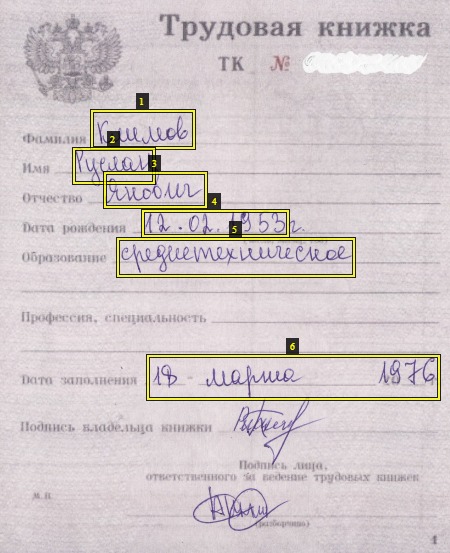 Трудовая книжка
ТК №
1
Фамилия Климов
2
Имя Руслан
3
Отчество
4
Дата рождения 12.02.1953г.
5
Образование среднетехническое
Профессия, специальность
6
Дата заполнения 18 - марта 1976
Подпись владельца книжки
Подпись лица,
ответственного за ведение трудовых книжек
М.П.
(разборчиво)
1